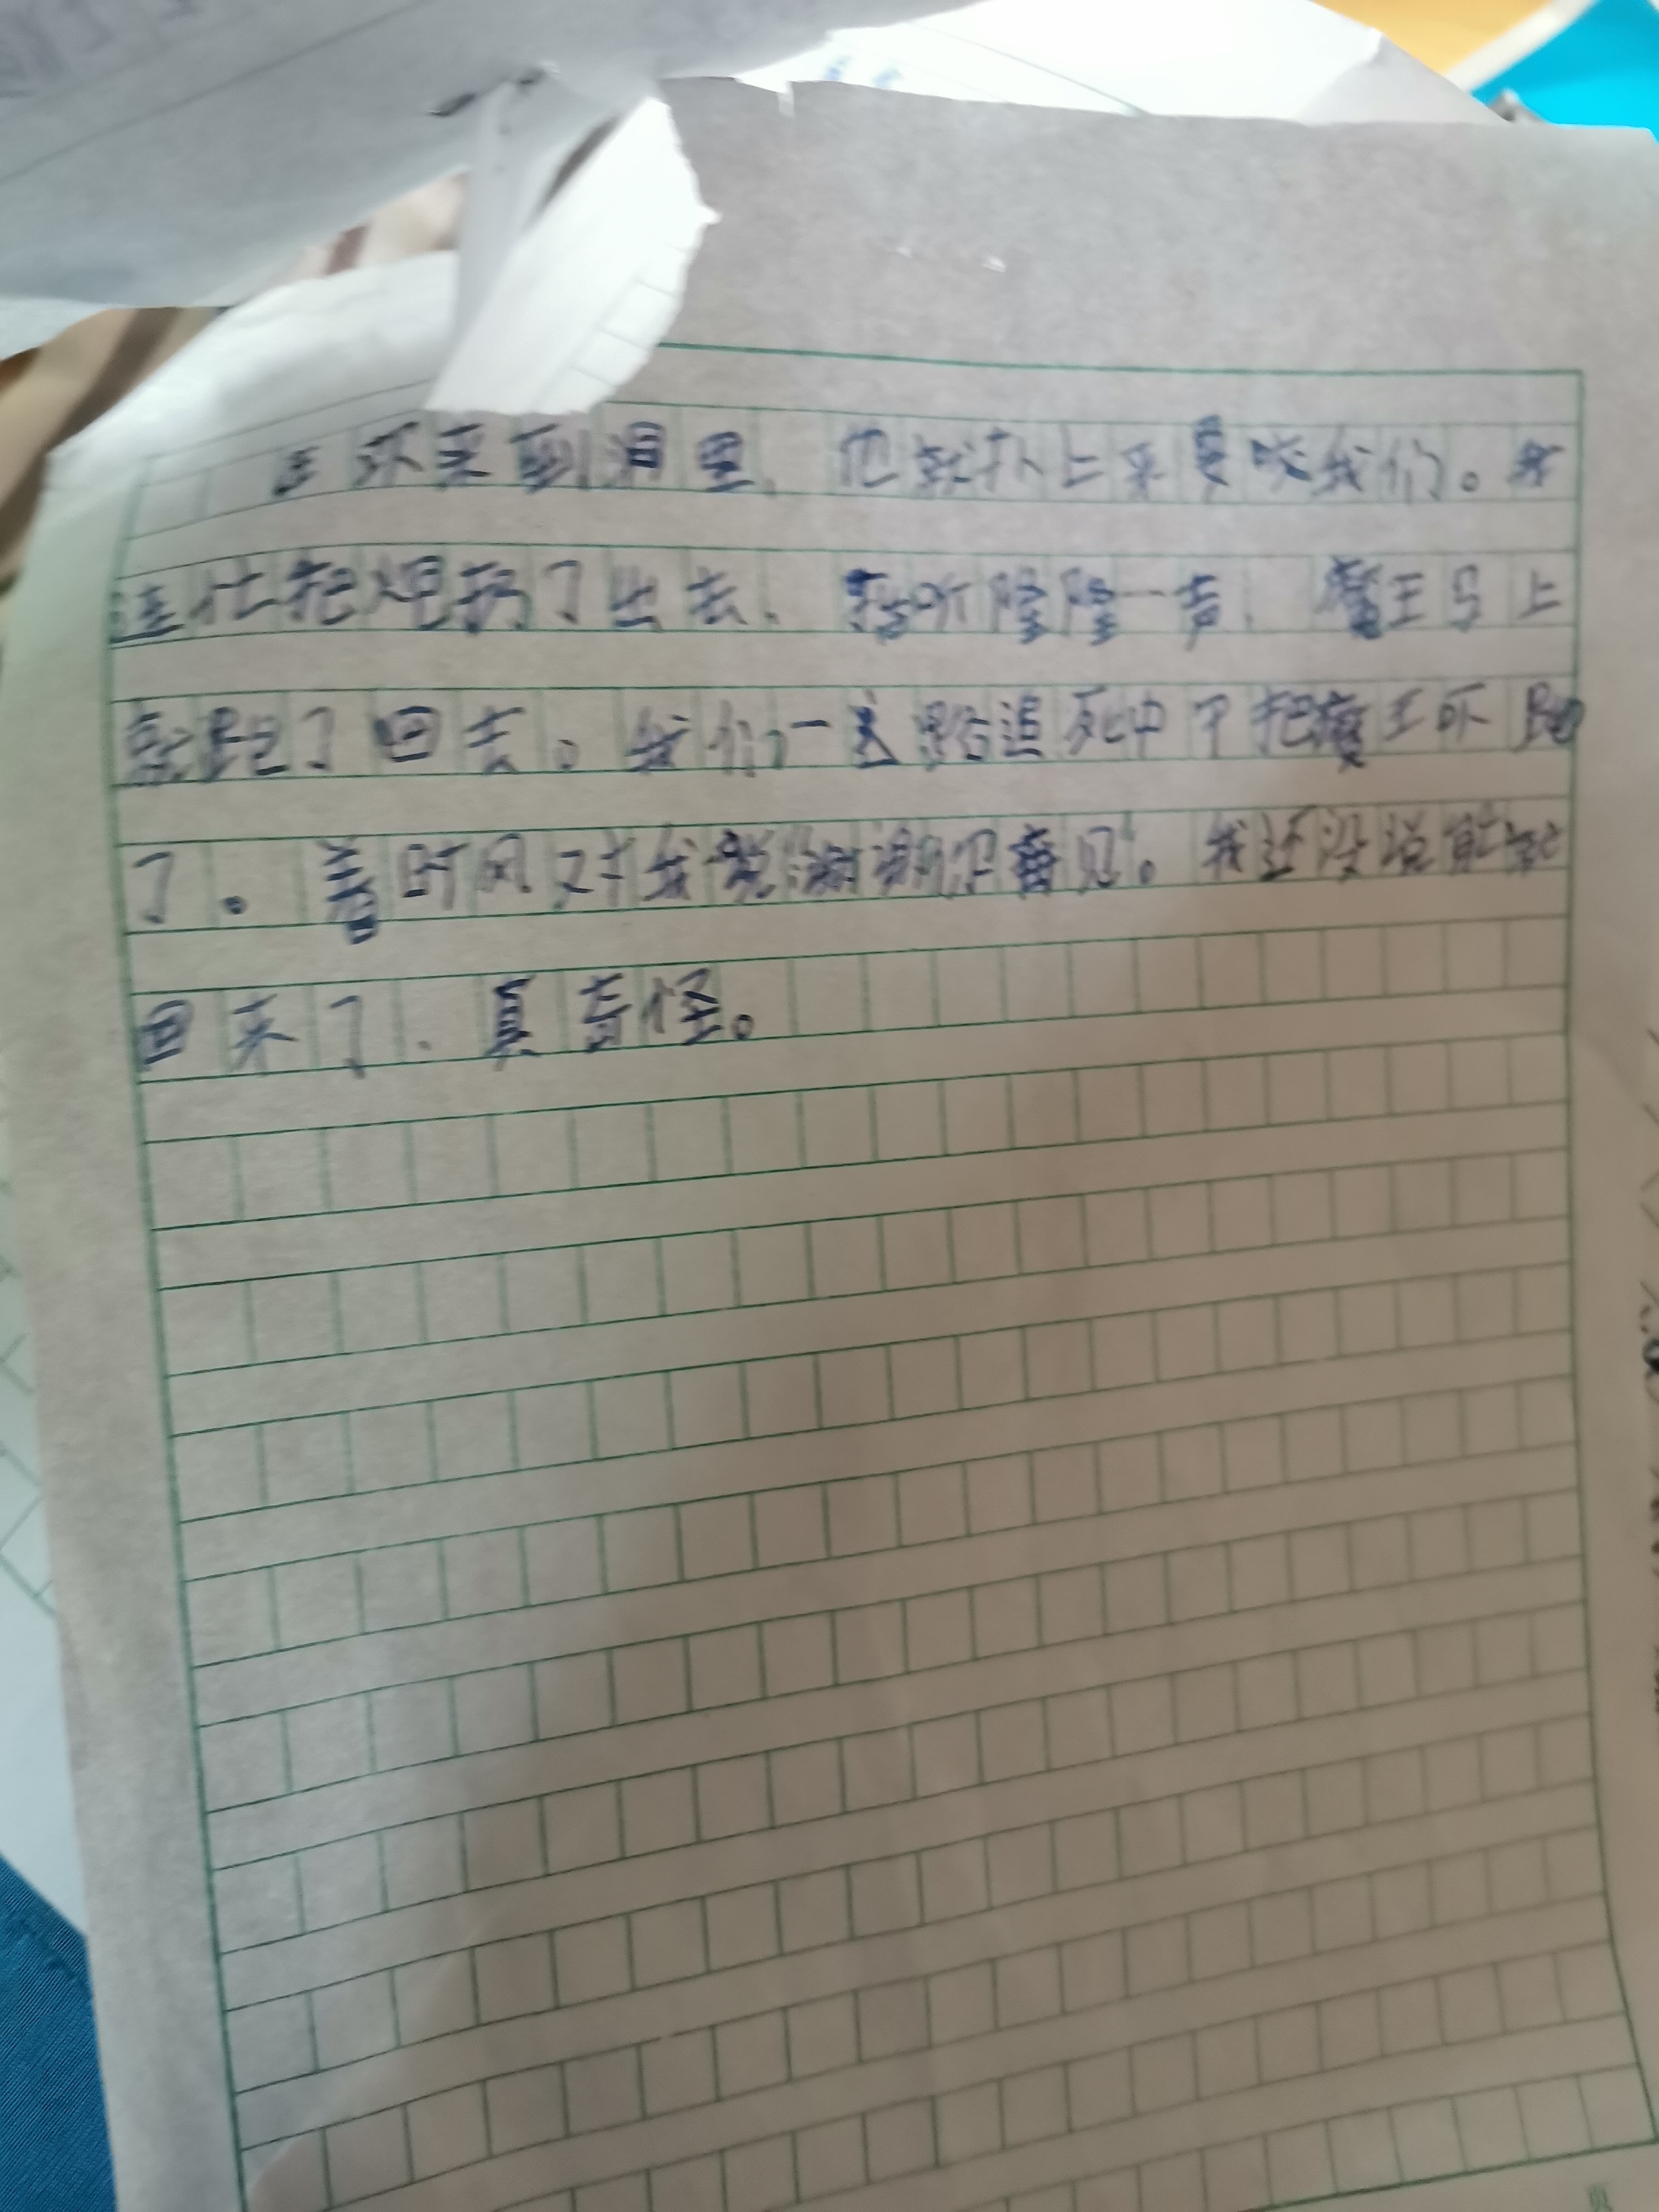 还来到洞里，他就扑上来要咬我们。我
连忙把炮扔了出去，我听隆隆一声，魔王马上
就跑了回去。我们一路追死中了把魔王吓跑
了。着时风对我说谢谢你再见"。我还没说能就
回来了，真奇怪。